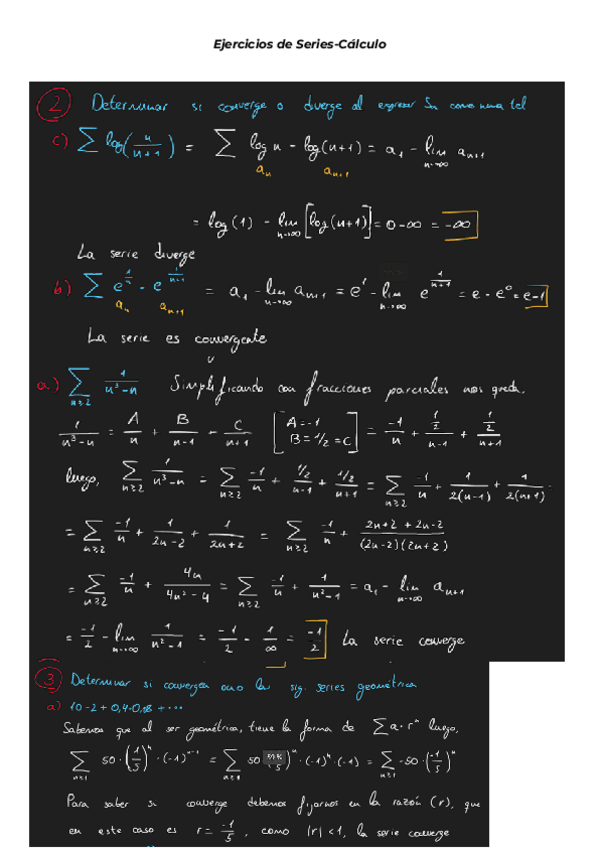 Ejercicios de Series-Cálculo
② Determinar si converge o diverge al expresar Sn como una tel
c) ∑ log(n/(n+1)) = ∑ log n - log(n+1) = a₁ - lim n→∞ aₙ₊₁
aₙ aₙ₊₁
= log(1) - lim n→∞ [log(n+1)] = 0 - ∞ = -∞
La serie diverge
b) ∑ e^(1/n) - e^(1/(n+1)) = a₁ - lim n→∞ aₙ₊₁ = e¹ - lim n→∞ e^(1/(n+1)) = e - e⁰ = e-1
aₙ aₙ₊₁
La serie es convergente
a) ∑ n≥2 1/(n³-n) Simplificando con fracciones parciales nos queda,
1/(n³-n) = A/n + B/(n-1) + C/(n+1) [A=-1 B=1/2=C] = -1/n + (1/2)/(n-1) + (1/2)/(n+1)
luego, ∑ n≥2 1/(n³-n) = ∑ n≥2 -1/n + (1/2)/(n-1) + (1/2)/(n+1) = ∑ n≥2 -1/n + 1/(2(n-1)) + 1/(2(n+1))
= ∑ n≥2 -1/n + 1/(2n-2) + 1/(2n+2) = ∑ n≥2 -1/n + (2n+2+2n-2)/((2n-2)(2n+2))
= ∑ n≥2 -1/n + 4n/(4n²-4) = ∑ n≥2 -1/n + 1/(n²-1) = a₁ - lim n→∞ aₙ₊₁
= -1/2 - lim n→∞ 1/(n²-1) = -1/2 - 1/∞ = -1/2 La serie converge
③ Determinar si convergen o no la sig. series geométrica
a) 10-2+0,4-0,08+...
Sabemos que al ser geométrica, tiene la forma de ∑a·rⁿ luego,
∑ n≥1 50·(1/5)ⁿ·(-1)ⁿ⁻¹ = ∑ n≥1 50 (1/5)ⁿ·(-1)ⁿ·(-1) = ∑ n≥1 -50·(-1/5)ⁿ
Para saber si converge debemos fijarnos en la razón (r), que
en este caso es r = -1/5, como |r|<1, la serie converge